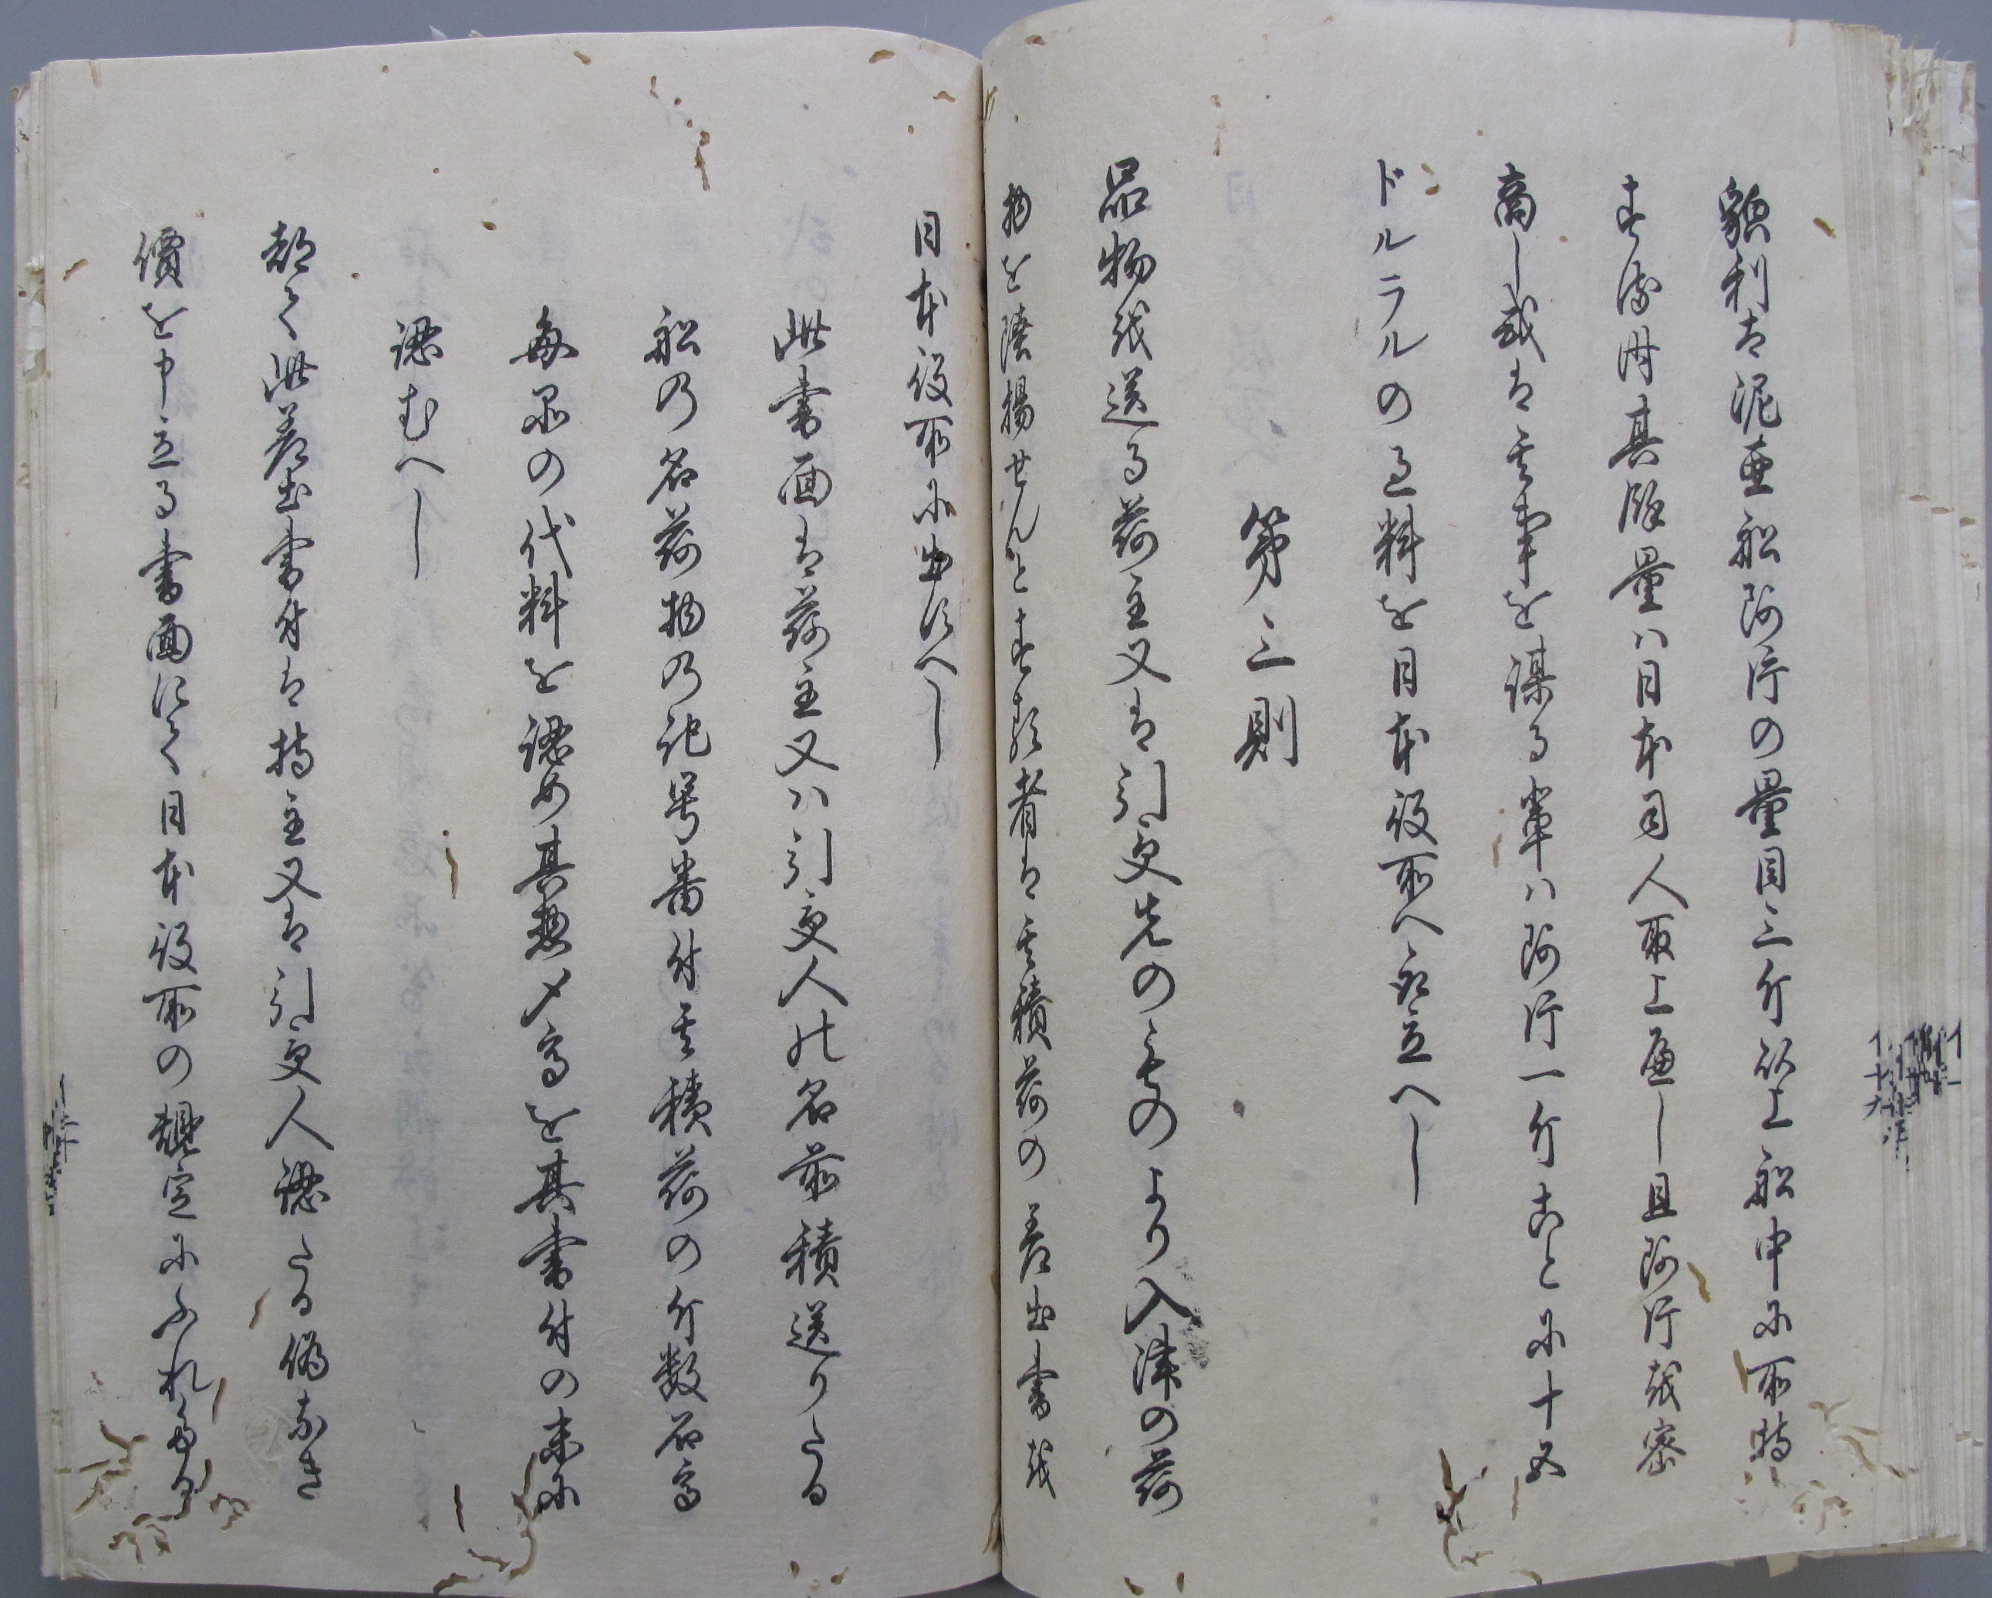 貌利太泥亜船阿片の量目三斤以上船中に所持
する時は其餘量ハ日本司人取上へし且阿片を密
商し或は其事を謀る輩ハ阿片一斤ことに十五
ドルラルの過料を日本役所へ取立へし
第三則
品物を送る荷主又は引受先のものより入津の荷
物を陸揚せんとする者は其積荷の差出書を
日本役所に出すへし
此書面は荷主又ハ引受人の名前積送りたる
船の名荷物の記号番付其積荷の斤数石高
毎品の代料を認め其惣〆高を其書付の末に
認むへし
都て此差出書付は持主又は引受人認たる偽なき
價を申立る書面にて日本役所の規定にふれさる